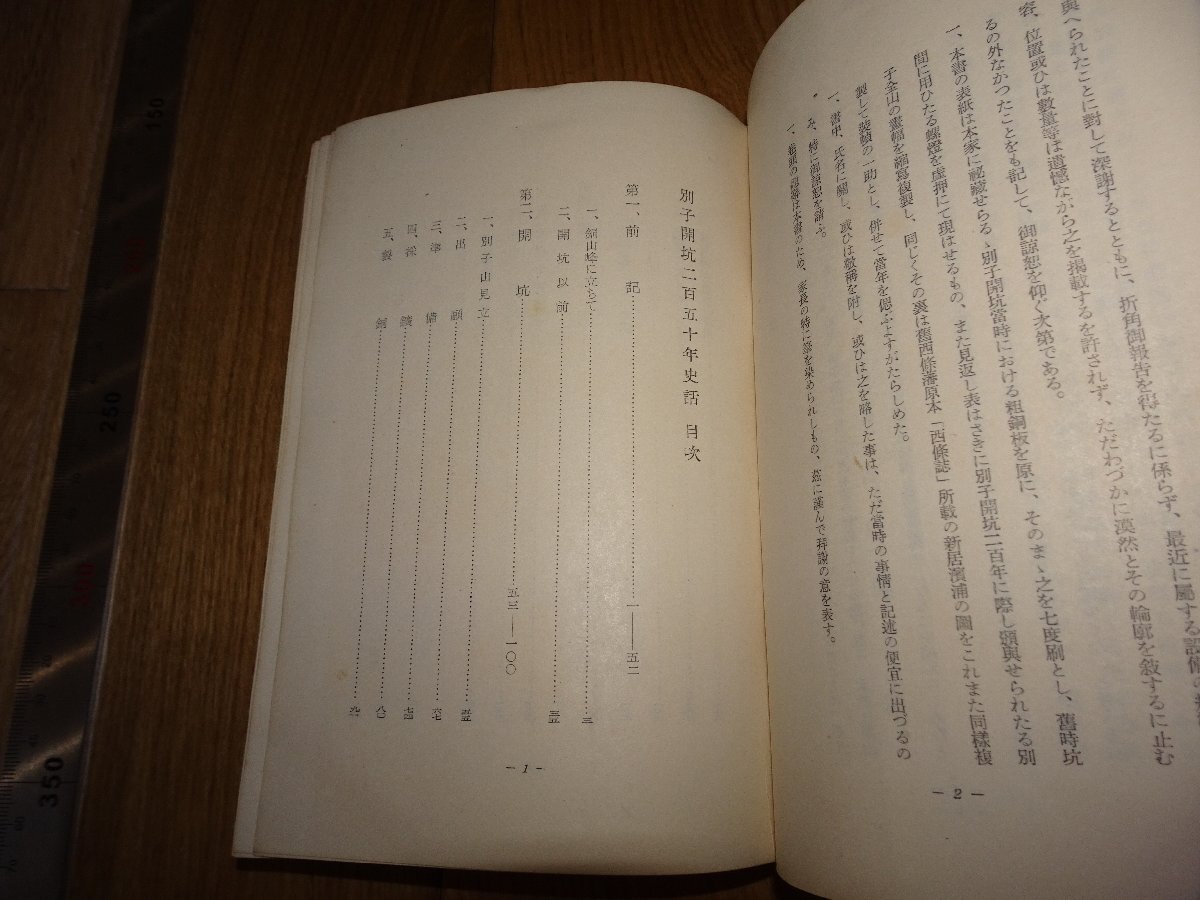 與へられたことに對して深謝するとともに、折角御報告を得たるに係らず、最近に屬する設備の
容、位置或ひは數量等は遺憾ながら之を掲載するを許されず、ただわづかに漠然とその輪廓を敘するに止む
るの外なかつたことをも記して、御諒恕を仰ぐ次第である。
一、本書の表紙は本家に祕藏せらるゝ別子開坑當時における粗銅板を原に、そのまゝ之を七度刷とし、舊時坑
間に用ひたる螺燈を虚押にて現はせるもの、また見返し表はさきに別子開坑二百年に際し頒與せられたる別
子全山の畫幅を縮寫複製し、同じくその裏は舊西條藩原本「西條誌」所載の新居濱浦の圖をこれまた同樣複
製して裝幀の一助とし、併せて當年を偲ぶよすがたらしめた。
一、書中、氏名に關し、或ひは敬稱を附し、或ひは之を略した事は、ただ當時の事情と記述の便宜に出づるの
み、特に御諒恕を請ふ。
一、卷頭の題簽は本書のため、家長の特に筆を染められしもの、茲に謹んで拜謝の意を表す。
— 2 —
別子開坑二百五十年史話 目次
第一、前記 一——五二
一、銅山峰に立ちて 三
二、開坑以前 三五
第二、開坑 五三——一〇〇
一、別子山見立 五五
二、出願 六七
三、準備 七四
四、採鑛 八〇
五、製銅 九一
— 1 —
150
250
350